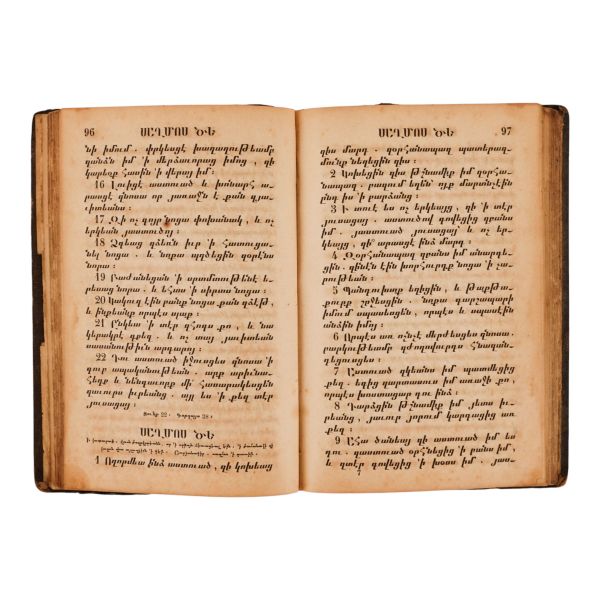 96 ՍԱՂՄՈՍ ԾԵ
նի իմում. փրկեսցէ խաղաղութեամբ
զանձն իմ ՚ի մերձաւորաց իմոց, զի
կարեօք հասին ՚ի վերայ իմ:
16 Լուիցէ աստուած և խոնարհ ա-
րասցէ զնոսա որ յառաջն է քան զյա-
ւիտեանս:
17 Զի ոչ գոյր նոցա փոխանակ, և ոչ
երկեան յաստուծոյ:
18 Ձգեաց զձեռն իւր ՚ի հատուցա-
նել նոցա. և նոքա պղծեցին զօրէնս
նորա:
19 Բաժանեցան ՚ի սրտմտութենէ ե-
րեսաց նորա. և եհաս ՚ի սիրտս նոցա:
20 կակուղ էին բանք նոցա քան զձէթ,
և ինքեանք որպէս սլաք:
21 Ընկեա ՚ի տէր զհոգս քո, և նա
կերակրէ զքեզ. և ոչ տայ յաւիտեան
սասանութիւն արդարոյ:
22 Դու աստուած իջուսցես զնոսա ՚ի
գուբ ապականութեան. արք արիւնա-
հեղք և նենգաւորք մի՛ հասարակեսցեն
զաւուրս իւրեանց. այլ ես ՚ի քեզ տէր
յուսացայ:
ՍԱՂՄՈՍ ԾԵ
1 Ողորմեա ինձ աստուած, զի կոխեաց
ՍԱՂՄՈՍ ԾԵ 97
զիս մարդ. զօրհանապազ պատերազ-
մունք նեղեցին զիս:
2 Կոխեցին զիս թշնամիք իմ զօրհա-
նապազ. բազում եղեն՝ ոյք մարտնչէին
ընդ իս ՚ի բարձանց:
3 Ի տուէ ես ոչ երկեայց, զի ՚ի տէր
յուսացայ. աստուծով գովեցից զբանս
իմ. յաստուած յուսացայ՝ և ոչ եր-
կեայց, զի՞ արասցէ ինձ մարդ:
4 Զօրհանապազ զբանս իմ անարգե-
ցին. զինէն էին խորհուրդք նոցա ՚ի չա-
րութեան:
5 Պանդուխտք եղիցին, և թաքթա-
քուրք շրջեսցին. նոքա գարշապարի
իմում սպասեցան, որպէս և սպասէին
անձին իմոյ:
6 Որպէս առ ոչնչէ մերժեսցես զնոսա.
բարկութեամբ զժողովուրդս հնազան-
դեցուսցես:
7 Աստուած զկեանս իմ պատմեցից
քեզ. եդից զարտասուս իմ առաջի քո,
որպէս խոստացար դու ինձ:
8 Դարձցին թշնամիք իմ յետս իւ-
րեանց, յաւուր յորում կարդացից առ
քեզ:
9 Ահա ծանեայ զի աստուած իմ ես
դու. զաստուած օրհնեցից ՚ի բանս իմ,
և զտէր գովեցից ՚ի խօսս իմ. յաս-